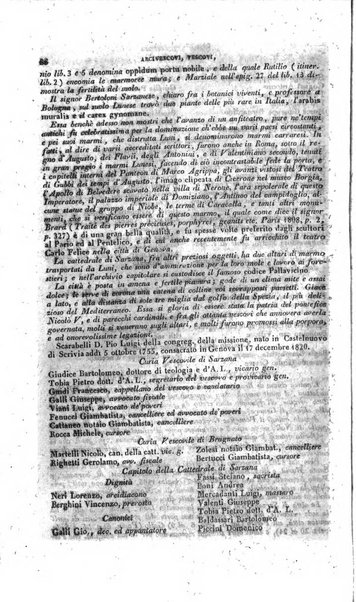 88 ARCIVESCOVI, VESCOVI,
nio lib. 3 e 5 denomina oppidum portu nobile, e della quale Rutilio (itiner.
lib. 2) encomia le marmoree mura; e Marziale nell'epig. 27 del lib. 13 di-
mostra la fertilità del suolo.
Il signor Bertoloni Sarzanese, chiaro fra i botanici viventi, e professore a
Bologna, sul suolo Lunese trovò due piante delle più rare in Italia, l'arabis
muralis e il carex gynomane.
Essa benchè adesso non mostri che l'aranzo di un anfiteatro, pure ne' tempi
antichi fu celebratissima per la dominazione ch'ebbe su varj paesi circostanti,
e pei suoi marmi, che distrutta Luni, si denominarono marmi carraresi. In-
fatti, al dire di varj accreditati scrittori, furono anche in Roma, sotto il re-
gno d'Augusto, dei Flavii, degli Antonini, e di l'indomabile d'Adriano, avuti
in gran pregio i marmi Lunensi, facendo di ciò incontrastabile fede la porta, e
i capitelli interni del Panteon di Marco Agrippa, gli avanzi visti del Teatro
di Gubbi dei tempi d'Augusto: l'imagine clipeata di Cicerone nel museo Borgia,
l'Apollo di Belvedere trovato nella villa di Nerone, l'ara sepolerale di questo
Imperatore, il palazzo imperiale di Domiziano, l'Antino del campidoglio, al-
cune statue del gruppo di Niobe, le terme di Corradello, e diversi altri mo-
numenti, che si verificano essere di questo marmo, il quale come dice il signor
Brard (Traité des pierres précieuses, porphyres, granits etc. Paris 1808, pag.
327) è di una gran bella qualità, e fu spesse volte preferito dagli scultori
al Pario ed al Pentelico, e di cui anche recentemente fu arricchito il teatro
Carlo Felice nella città di Genova.
La cattedrale di Sarzana, fra altri preziosi oggetti, ha due altari di marmo
trasportati da Luni, che sono d'ammirazione per la loro finezza ai colti fora-
stieri; e nell'archivio capitolare si custodisce intatto il famoso codice Pallavicino
La città è posta in amena e fertile pianura; gode di un clima mite e assai
dolce; le serve di corona una deliziosa catena di colline, ed il corso della Magra
a lato, e alla distanza di sole tre miglia dal golfo della Spezia, il più gran-
dioso del Mediterraneo. Essa si gloria di essere stata la patria del pontefice
Nicolò V, e di parecchi cardinali, e fra gli ottanta vescovi che annovera averla
governata, molti si venerano sugli altari, e molti commendevoli per la porpora
ed onorevolissime legazioni.
Scarabelli D. Pio Luigi della congreg. della missione, nato in Castelnuovo
di Scrivia addì 5 ottobre 1755, consacrato in Genova il 17 dicembre 1820.
Curia Vescovile di Sarzana
Giudice Bartolomeo, dottore di teologia e d'A. L., vicario gen.
Tobia Pietro dott. d'A. L., segretario del vescovo e provicario gen.
Guidi Francesco, cappellano del vescovo e caudatario
Galli Giuseppe, avvocato fiscale
Viani Luigi, avvocato de' poveri
Fenucci Giambatista, cancelliere ed avvocato de' poveri
Cattaneo notaio Giambatista, cancelliere
Rocca Michele, cursore
Curia Vescovile di Brugnato
Martelli Nicolao, can. della catt. vic. g.
Righetti Gerolamo, avv. fiscale
Zolesi notaio Giambat., cancelliere
Bertucci Giambatista, cursore
Capitolo della Cattedrale di Sarzana
Dignità
Neri Lorenzo, arcidiacono
Berghini Vincenzo, prevosto
Canonici
Galli Gio., dec. ed appuntatore
Fassi Stefano, sacrista
Boni Andrea
Mercadanti Luigi, massaro
Valenti Giuseppe
Tobia Pietro dott. d'A. L.
Baldassari Bartolomeo
Piccini Domenico